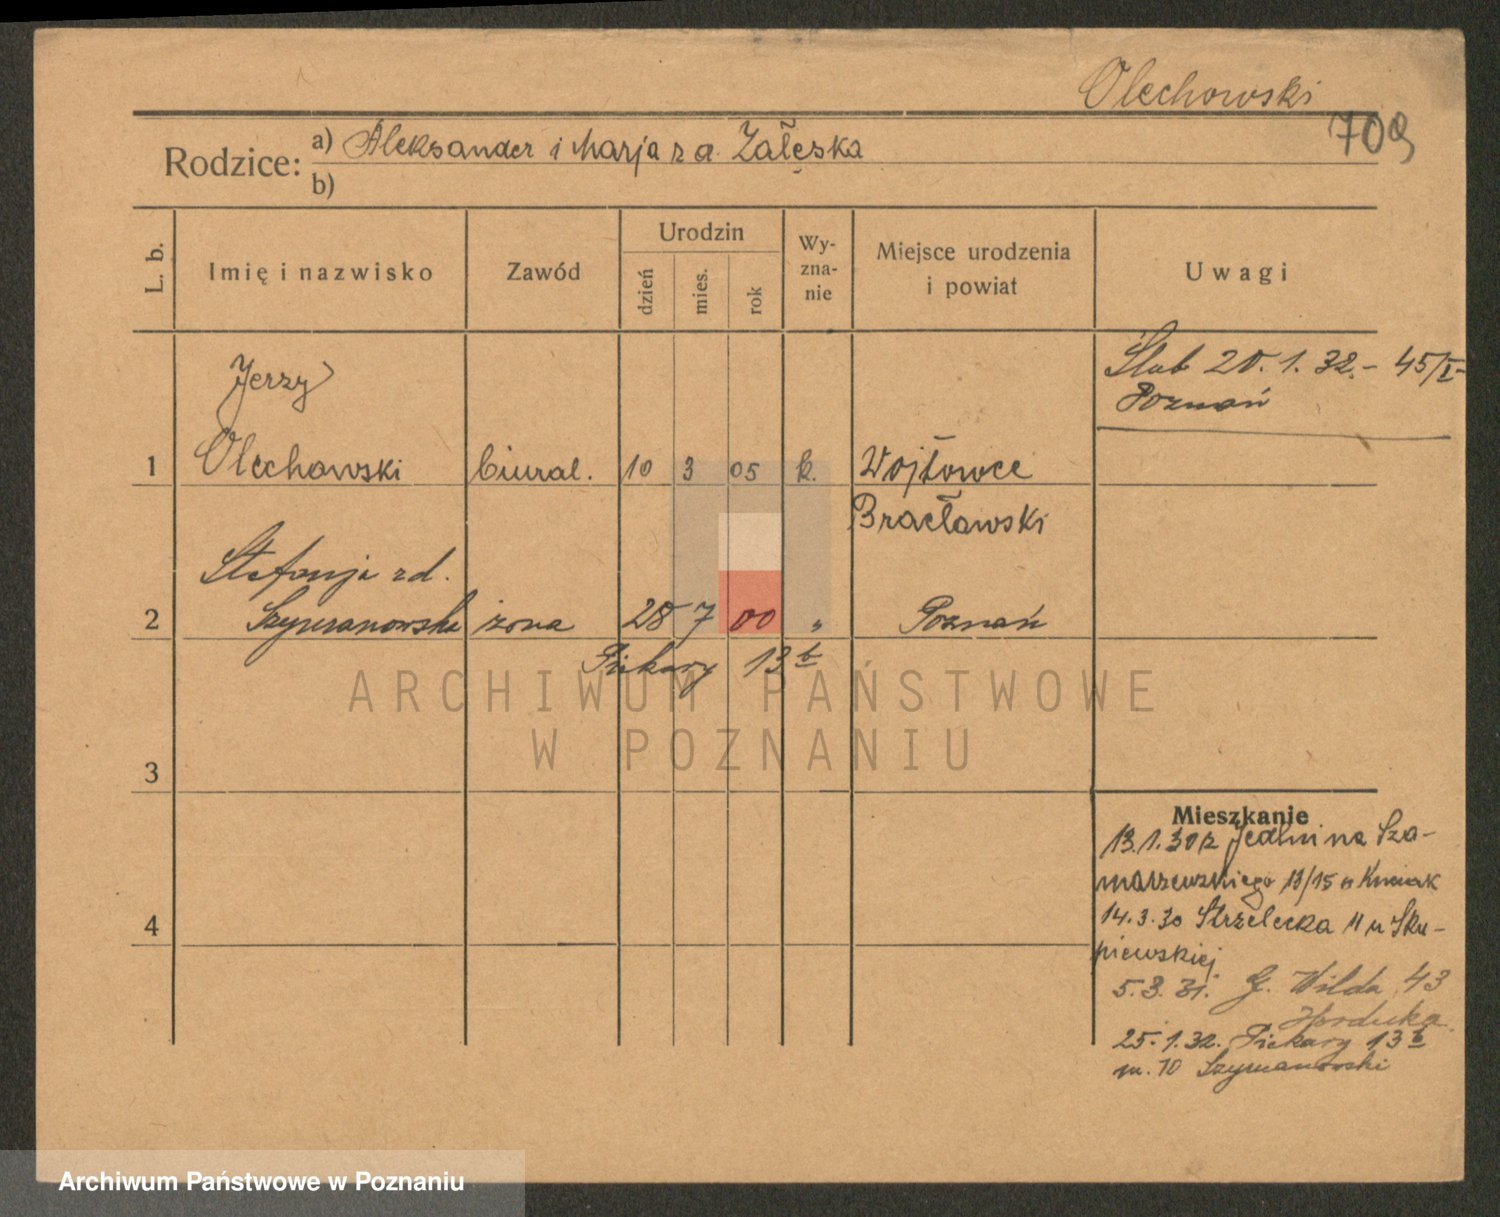 Olechowski
709
Rodzice: a) Aleksander i Marja z d. Załęska
b)
L. b.
Imię i nazwisko
Zawód
Urodzin
dzień
mies.
rok
Wy-
zna-
nie
Miejsce urodzenia
i powiat
Uwagi
Ślub 20.1.32.- 45/I-
Poznań
Jerzy
1 Olechowski biural. 10 3 05 k. Wojtowce
Bracławski
Stefanja z d.
2 Szymanowska żona 28 7 00 " Poznań
Piekary 13 b
ARCHIWUM PAŃSTWOWE
W POZNANIU
3
Mieszkanie
13.1.30 z Jedlni na Sza-
marzewskiego 13/15 u
4
14.3.30 Strzelecka 11 u Sku-
piewskiej
5.3.31. G. Wilda 43
25.1.32. Piekary 13 b
m. 10 Szymanowski
Archiwum Państwowe w Poznaniu